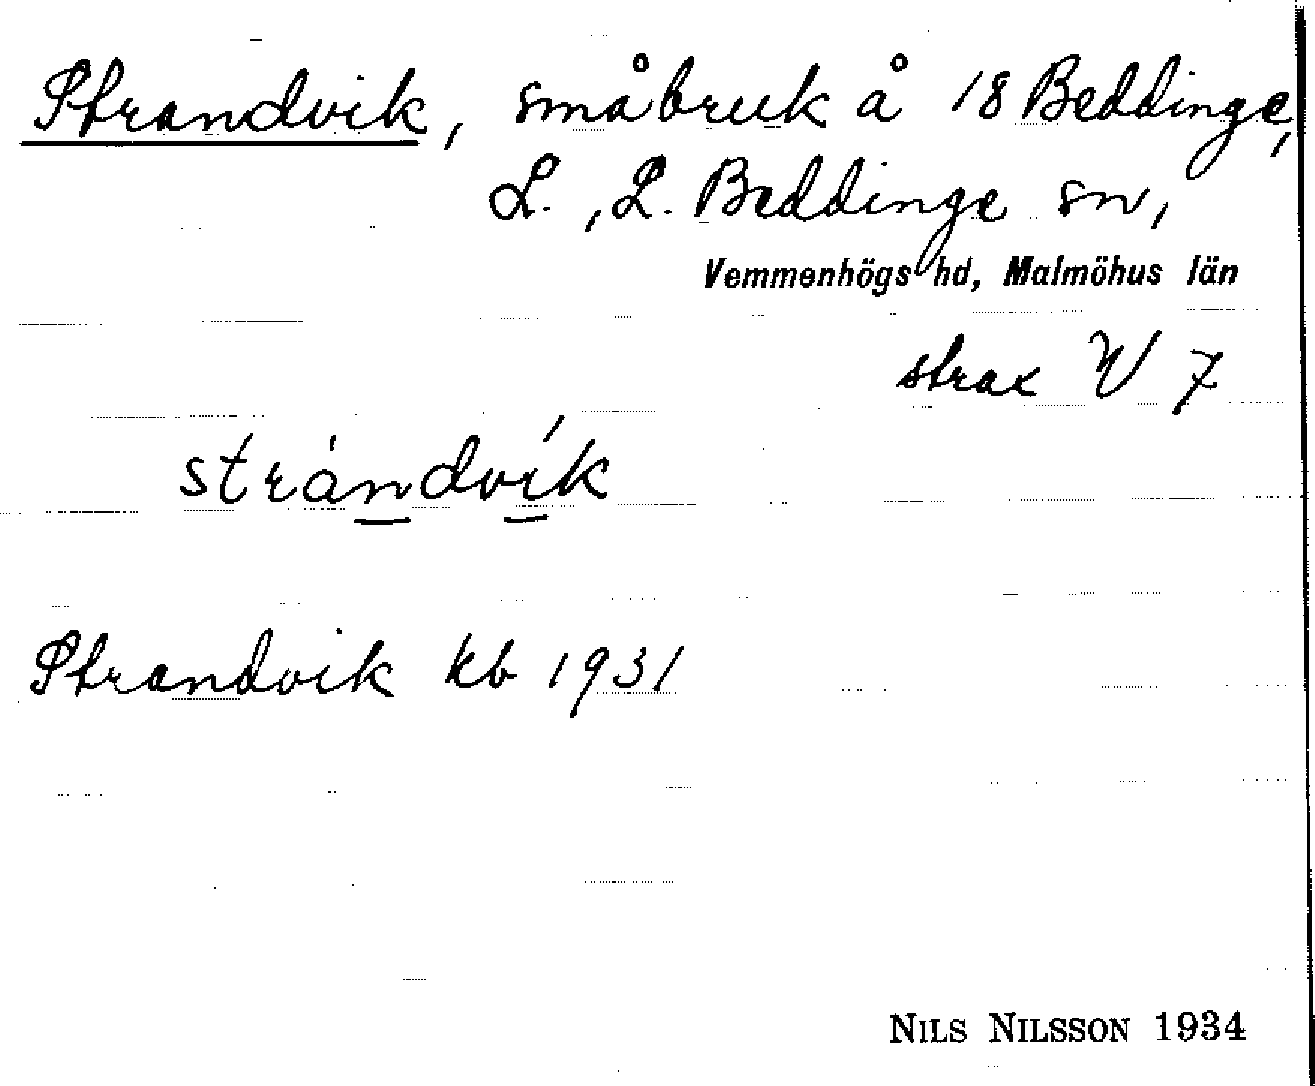 Strandvik, småbruk å 18 Beddinge,
L., L. Beddinge sn,
Vemmenhögs hd, Malmöhus län
strax V 7
stràndvík
Strandvik kb 1931
NILS NILSSON 1934